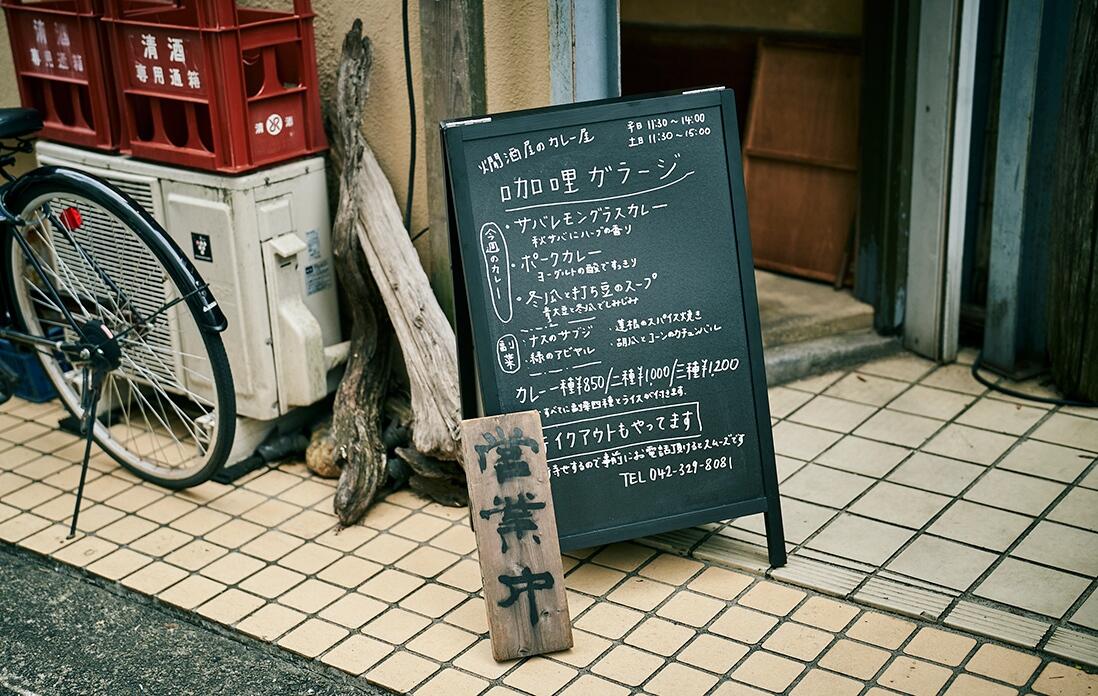 清酒
専用通箱
清酒
専用通箱
清 酒
燗酒屋のカレー屋
平日 11:30～14:00
土日 11:30～15:00
咖哩ガラージ
今週のカレー
・サバレモングラスカレー
秋サバにハーブの香り
・ポークカレー
ヨーグルトの酸ですっきり
・冬瓜と打ち豆のスープ
青大豆と冬瓜でしみじみ
副菜
・ナスのサブジ
・蓮根のスパイス焼き
・緑のアビヤル
・胡瓜とコーンのカチュンバル
カレー一種¥850/二種¥1,000/三種¥1,200
すべてに副菜四種とライスが付きます。
イクアウトもやってます
待せするので事前にお電話頂けるとスムーズです
TEL 042-329-8081
営業中